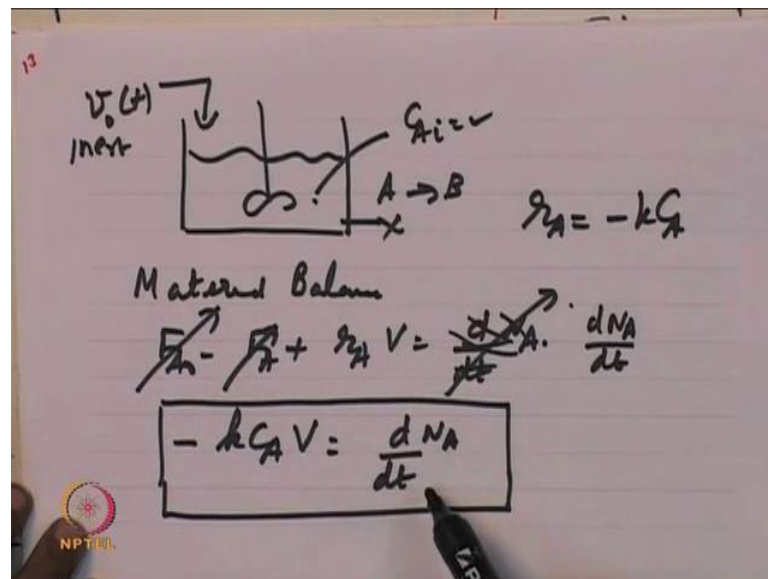 13
v₀(t)
inert
C_Ai = ✓
A → B
r_A = -kC_A
Material Balance
F_A₀ - F_A + r_A V = dN_A/dt
- k C_A V = d/dt N_A
NPTEL